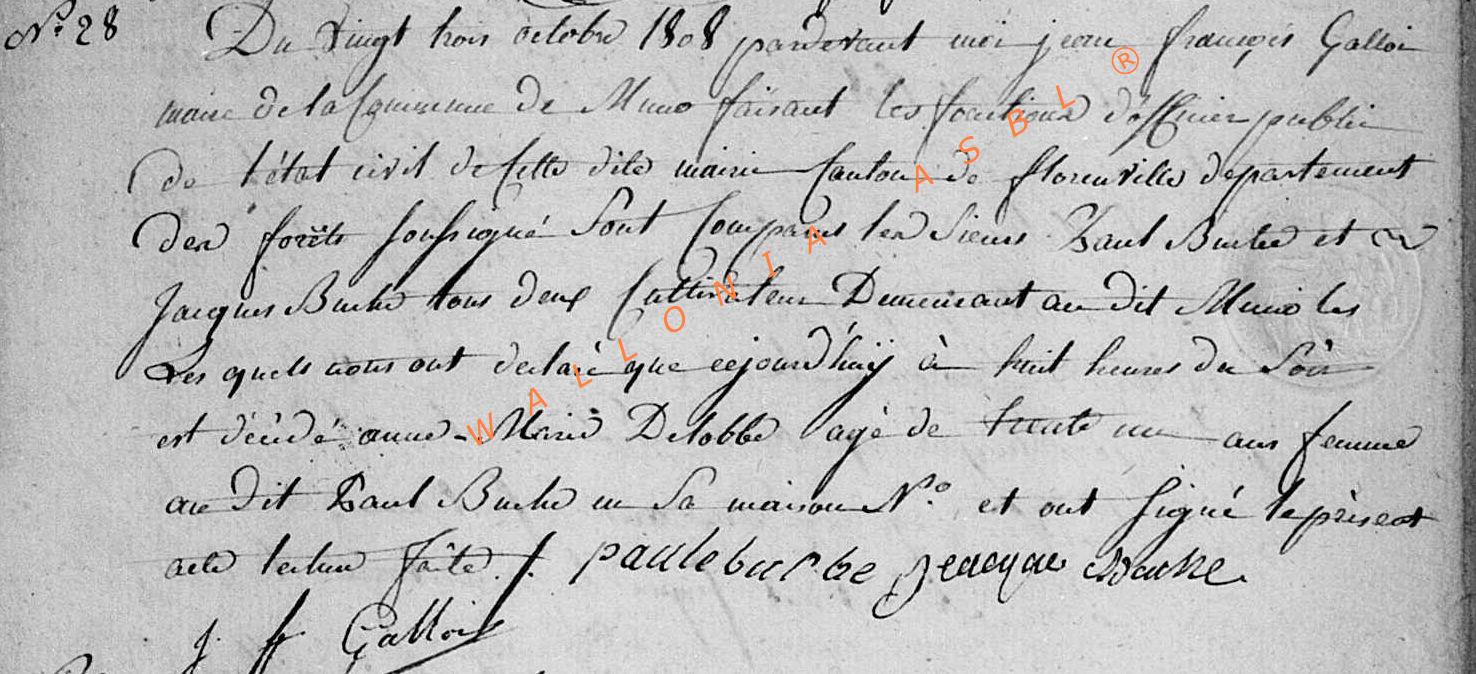 N.o 28
Du vingt trois octobre 1808 pardevant moi jean françois Galloi
maire de la Commune de Muno faisant les fonctions d'officier public
de l'état civil de Cette dite mairie Canton de florenville departement
des forêts soussigné Sont Comparus les Sieurs Paul Burhe et
Jacques Burhe tous deux Cultivateur Demeurant au dit Muno les
Les quels nous ont declaré que cejourd'huÿ à huit heures du Soir
est décédé anne-Marie Delobbe agé de trente un ans femme
au dit Paul Burhe en Sa maison N.o et ont signé le présent
acte lecture faite ./. paule burhe Jacque
J f Gallois
WALLONIA ASBL ®